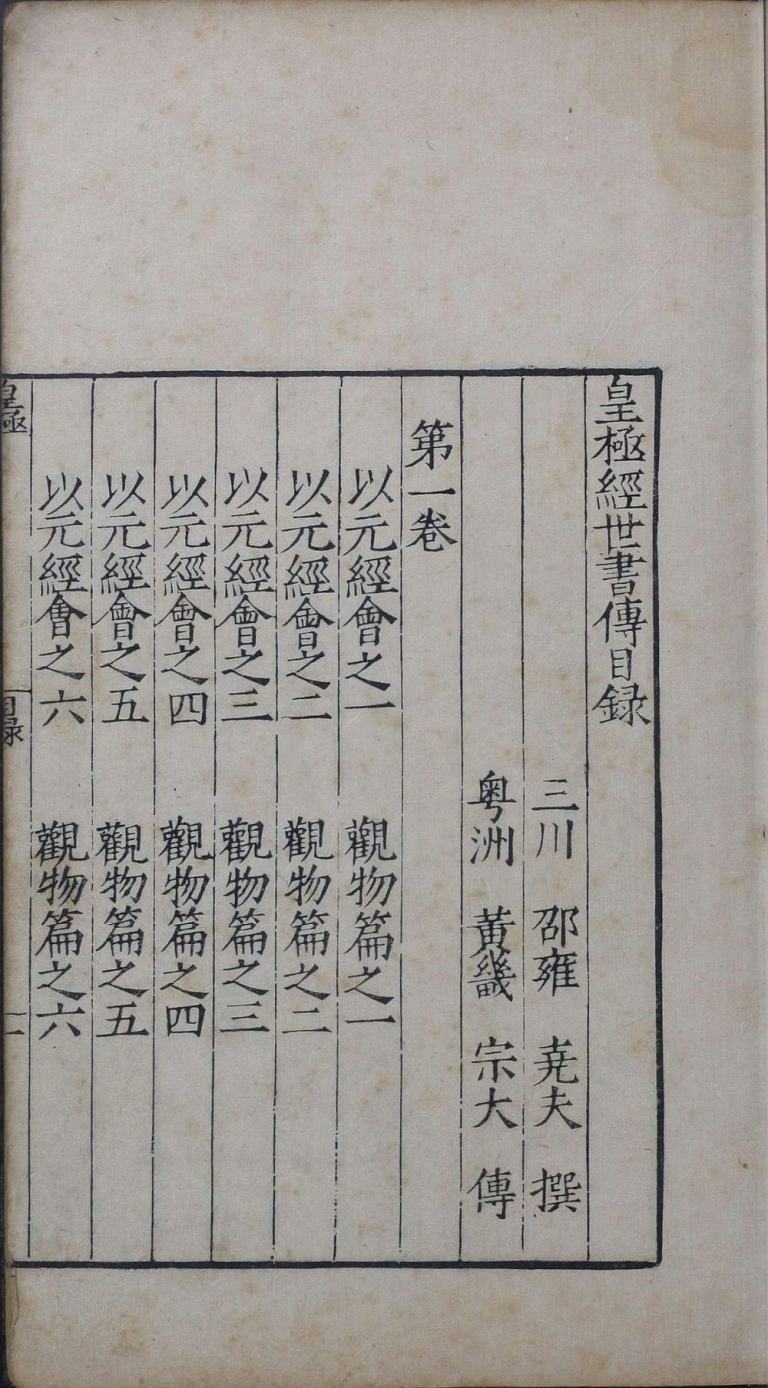 皇極經世書傳目録
三川 邵雍 堯夫 撰
粤洲 黃畿 宗大 傳
第一卷
以元經會之一 觀物篇之一
以元經會之二 觀物篇之二
以元經會之三 觀物篇之三
以元經會之四 觀物篇之四
以元經會之五 觀物篇之五
以元經會之六 觀物篇之六
皇極 目録